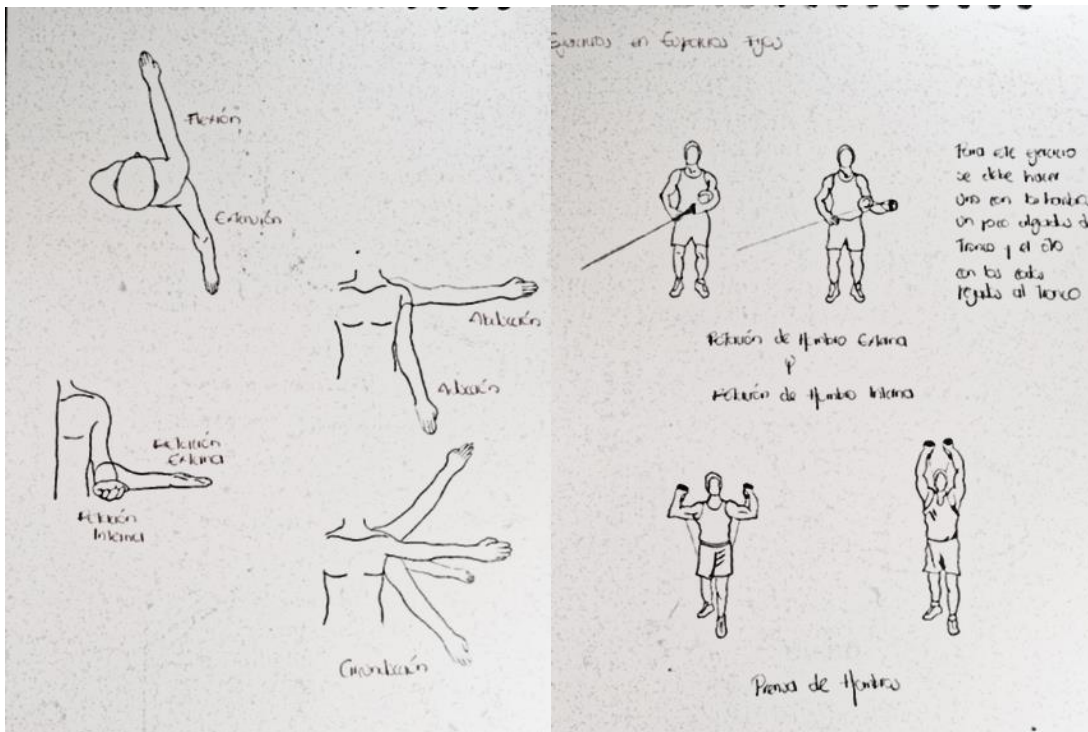 Flexión
Extensión
Abducción
Aducción
Rotación
Externa
Rotación
Interna
Circunducción
Ejercicios en Espacios Fijos
Para este ejercicio
se debe hacer
uno con los hombros
un poco alejados del
Tronco y el otro
con los codos
pegados al Tronco
Rotación de Hombro Externa
y
Rotación de Hombro Interna
Prensa de Hombros